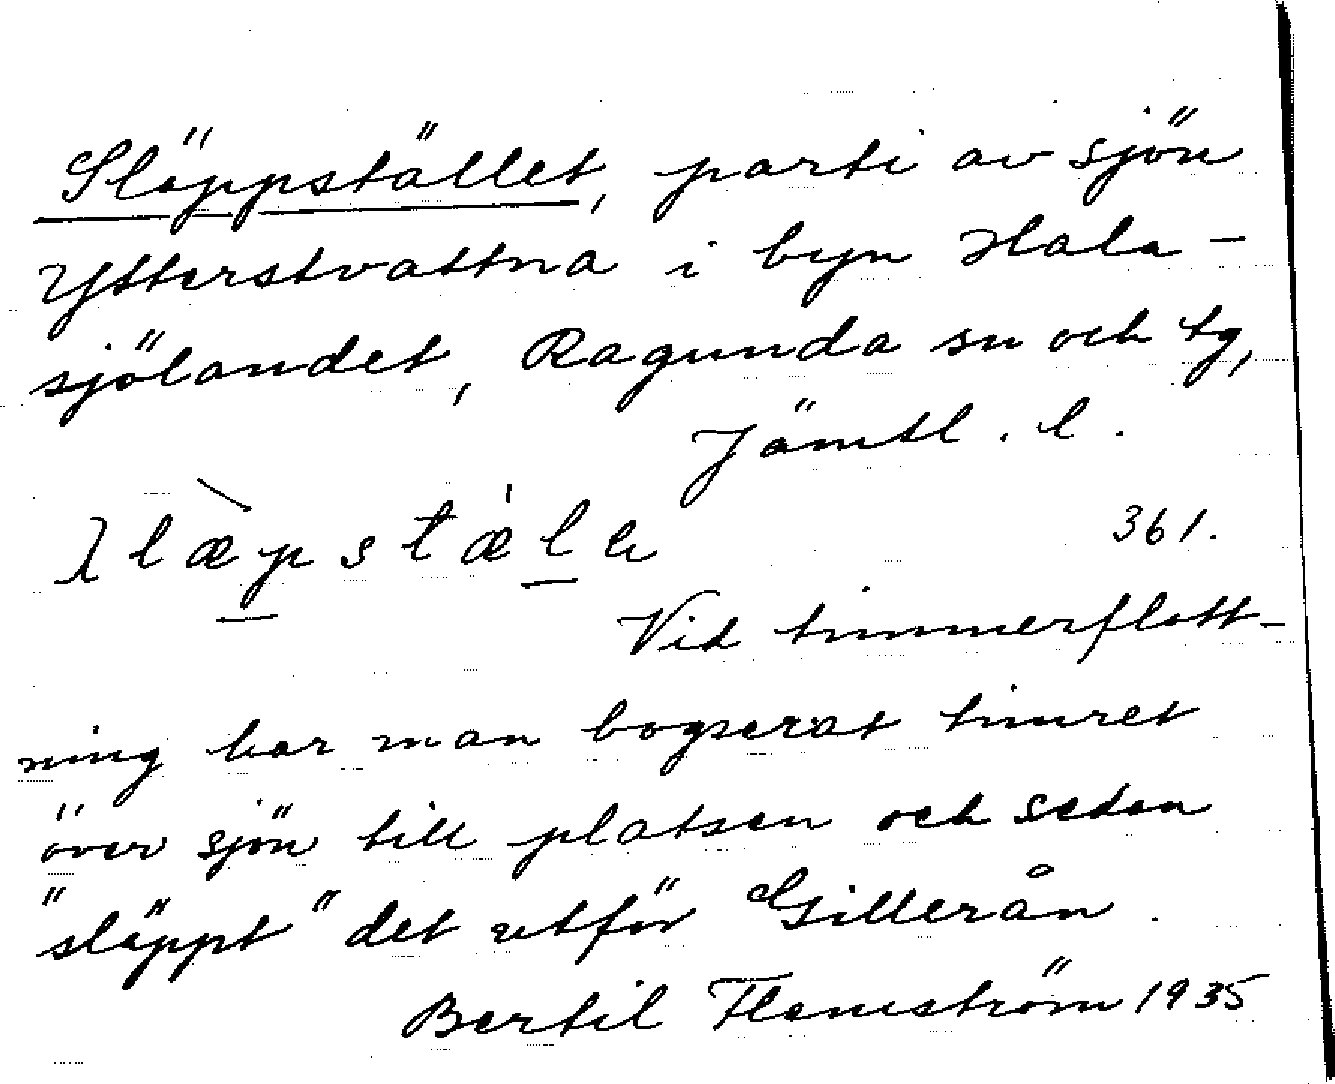 Släppstället, parti av sjön
Ytterstvattna i byn Hala-
sjölandet, Ragunda sn och tg,
Jämtl. l.
slæpstæle
361.
Vid timmerflott-
ning har man bogserat timret
över sjön till platsen och sedan
"släppt" det utför Gillerån.
Bertil Flemström 1935